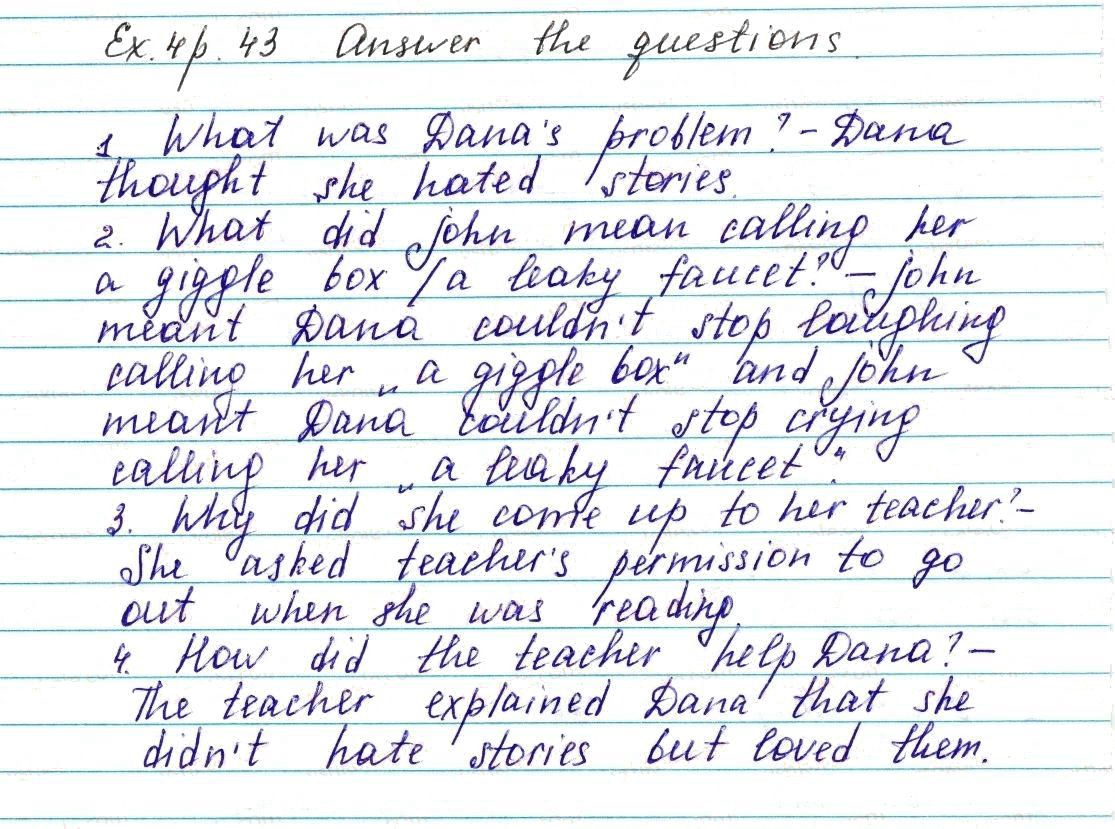 Ex. 4 p. 43 Answer the questions.
1. What was Dana's problem? – Dana
thought she hated stories.
2. What did John mean calling her
a giggle box / a leaky faucet? – John
meant Dana couldn't stop laughing
calling her „a giggle box" and John
meant Dana couldn't stop crying
calling her „a leaky faucet".
3. Why did she come up to her teacher? –
She asked teacher's permission to go
out when she was reading.
4. How did the teacher help Dana? –
The teacher explained Dana that she
didn't hate stories but loved them.